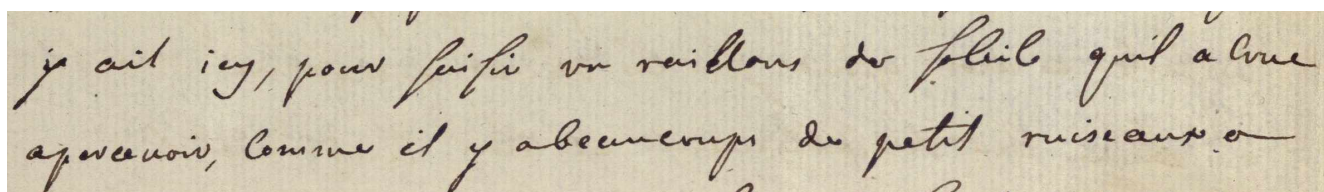 y ait icy, pour saisir un raillons de soleile quil a crue
apercevoir, comme il y abeaucoups de petit ruiseaux a